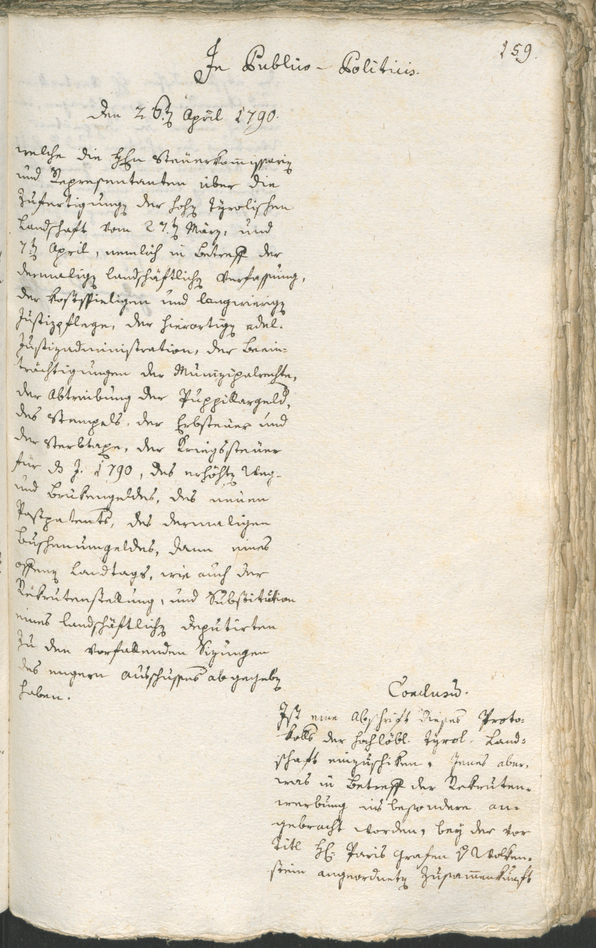 159.
In Publico-Politicis.
den 26.t April 1790.
welche die HHn Steuerkommissarien
und Representanten über die
Zufertigung der hohen Tyrolischen
Landschaft vom 27.t März, und
7.t April, nemlich in Betreff der
dermalig landschäftlich Verfassung,
der kostspieligen und langwierig
Justizpflege, der hierortig adel.
Justizadministration, der Beein-
trächtigungen der Munizipalrechte,
der Abtreibung der Puppillargeld,
des Stempels, der Erbsteuer und
der Sterbtaxe, der Kriegssteuer
für d. J. 1790, des erhöht Weg-
und Brukengeldes, des neuen
Postpatents, des dermaligen
Buschenumgeldes, dann eines
offenen Landtags, wie auch der
Rekrutenstellung, und Substitution
eines landschäftlich Deputirten
zu den vorfallenden Sizungen
des engern Ausschusses abgegeben
haben.
Conclusum.
Ist eine Abschrift dieses Proto-
kolls der hochlöbl. Tyrol. Land-
schaft einzuschiken, jenes aber,
was in Betreff der Rekruten-
werbung insbesondere an-
gebracht worden, bey der vor
Titl H: Paris Grafen v Wolken-
stein angeordneten Zusammenkunft